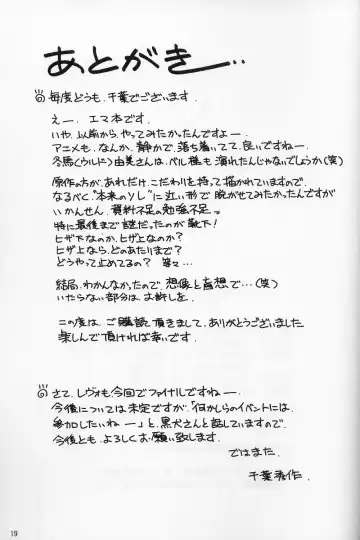 あとがき…
毎度どうも、千葉でございます。
えー、エマ本です。
いや、以前から、やってみたかったんですよー。
アニメも、なんか、静かで、落ち着いてて良いですねー。
冬馬(ウルド)由美さんは、ベル様も演れたんじゃないでしょうか(笑)
原作の方が、あれだけ、こだわりを持って描かれていますので、
なるべく"本来のソレ"に近い形で脱がせてみたかったんですが
いかんせん、資料不足の勉強不足。
特に最後まで謎だったのが靴下!
ヒザ下なのか、ヒザ上なのか?
ヒザ上なら、どのあたりまで?
どうやって止めてるの? 等々…
結局、わかんなかったので、想像と妄想で…(笑)
いたらない部分は、お許しを。
この度は、ご購読頂きまして、ありがとうございました
楽しんで頂ければ幸いです。
さて、レヴォも今回でファイナルですねー。
今後については未定ですが「何かしらのイベントには、
参加したいねー」と、黒犬さんと話していますので、
今後とも、よろしくお願い致します。
ではまた。
千葉秀作
19